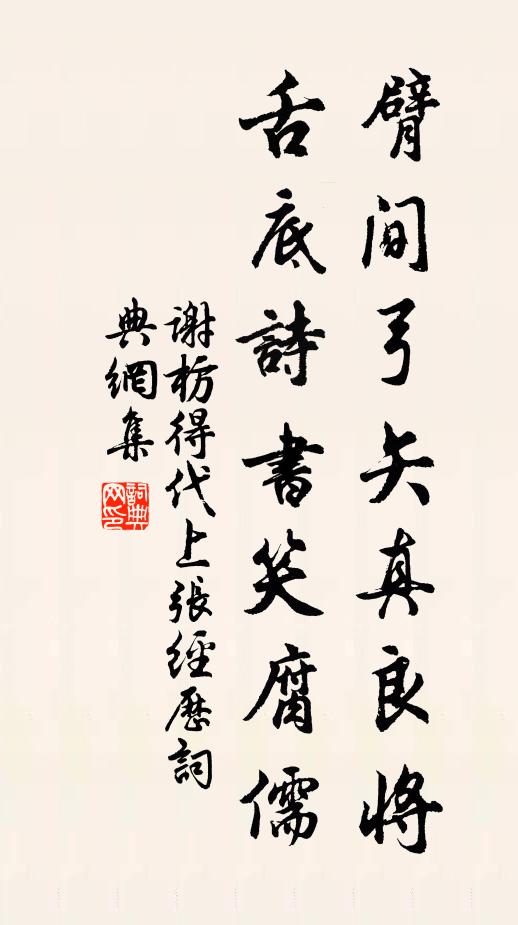 臂間弓矢真良將
舌底詩書笑腐儒
謝枋得代上張經歷詞
典網集
詞典
网印